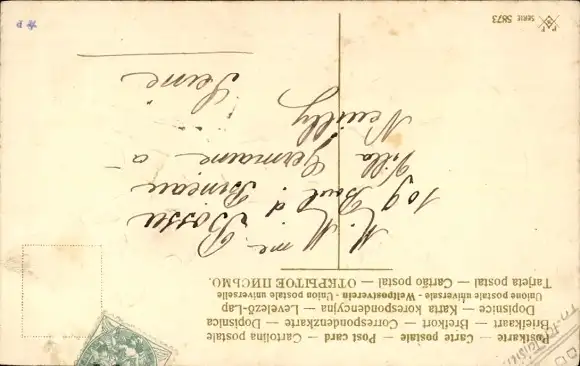 Postkarte — Carte postale — Post card — Cartolina postale
Briefkaart — Brefkort — Correspondenzkarte — Dopisnica
Dopisnice — Karta korespondencyjna — Levelező-Lap
Unione postale universale - Weltpostverein - Union postale universelle
Tarjeta postal — Cartão postal — ОТКРЫТОЕ ПИСЬМО.
M. Mme
109 Boul d
Villa Germaine à
Neuilly
Seine
SERIE 5873